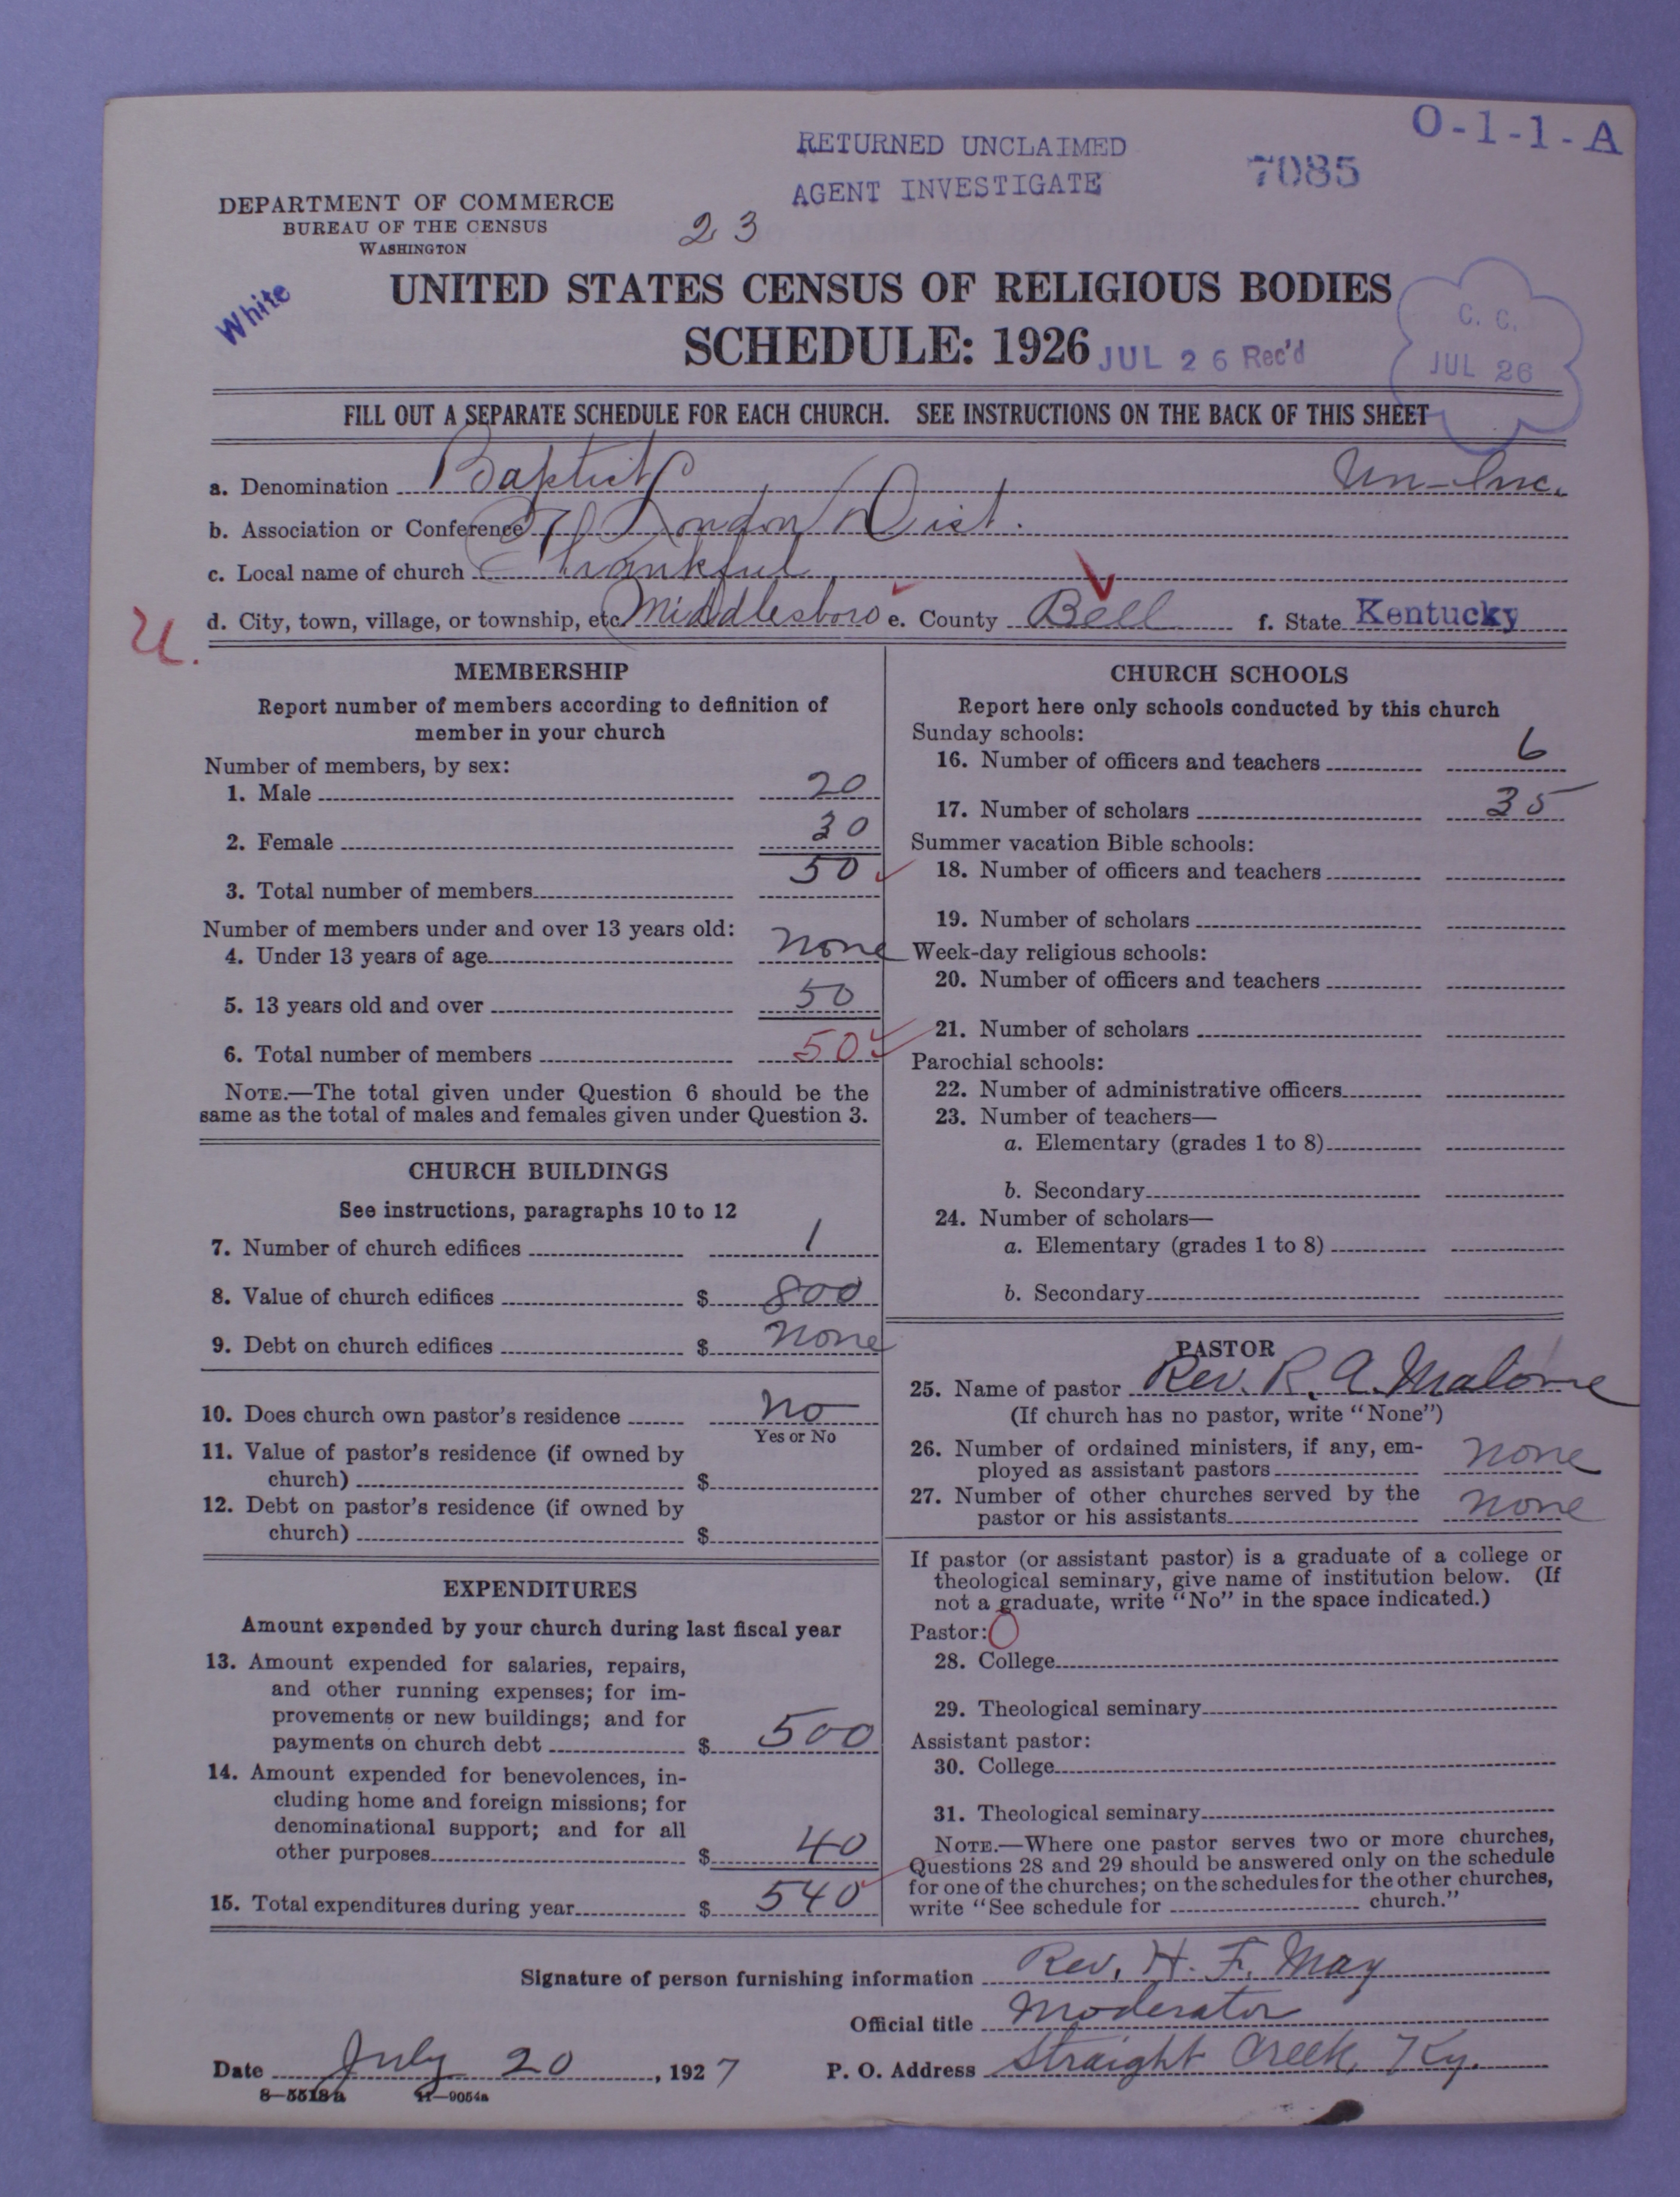 O-1-1-A
RETURNED UNCLAIMED
AGENT INVESTIGATE
7085
DEPARTMENT OF COMMERCE
BUREAU OF THE CENSUS
WASHINGTON
23
White
UNITED STATES CENSUS OF RELIGIOUS BODIES
SCHEDULE: 1926
JUL 26 Rec'd
C. C.
JUL 26
FILL OUT A SEPARATE SCHEDULE FOR EACH CHURCH. SEE INSTRUCTIONS ON THE BACK OF THIS SHEET
a. Denomination Baptist Un-Inc.
b. Association or Conference London Dist.
c. Local name of church Thankful
d. City, town, village, or township, etc. Middlesboro e. County Bell f. State Kentucky
U.
MEMBERSHIP
Report number of members according to definition of
member in your church
Number of members, by sex:
1. Male 20
2. Female 30
3. Total number of members 50
Number of members under and over 13 years old:
4. Under 13 years of age none
5. 13 years old and over 50
6. Total number of members 50
NOTE.—The total given under Question 6 should be the
same as the total of males and females given under Question 3.
CHURCH BUILDINGS
See instructions, paragraphs 10 to 12
7. Number of church edifices 1
8. Value of church edifices $ 800
9. Debt on church edifices $ none
10. Does church own pastor's residence no
Yes or No
11. Value of pastor's residence (if owned by
church) $
12. Debt on pastor's residence (if owned by
church) $
EXPENDITURES
Amount expended by your church during last fiscal year
13. Amount expended for salaries, repairs,
and other running expenses; for im-
provements or new buildings; and for
payments on church debt $ 500
14. Amount expended for benevolences, in-
cluding home and foreign missions; for
denominational support; and for all
other purposes $ 40
15. Total expenditures during year $ 540
CHURCH SCHOOLS
Report here only schools conducted by this church
Sunday schools:
16. Number of officers and teachers 6
17. Number of scholars 35
Summer vacation Bible schools:
18. Number of officers and teachers
19. Number of scholars
Week-day religious schools:
20. Number of officers and teachers
21. Number of scholars
Parochial schools:
22. Number of administrative officers
23. Number of teachers—
a. Elementary (grades 1 to 8)
b. Secondary
24. Number of scholars—
a. Elementary (grades 1 to 8)
b. Secondary
PASTOR
25. Name of pastor Rev. R. A. Malone
(If church has no pastor, write "None")
26. Number of ordained ministers, if any, em-
ployed as assistant pastors none
27. Number of other churches served by the
pastor or his assistants none
If pastor (or assistant pastor) is a graduate of a college or
theological seminary, give name of institution below. (If
not a graduate, write "No" in the space indicated.)
Pastor: O
28. College
29. Theological seminary
Assistant pastor:
30. College
31. Theological seminary
NOTE.—Where one pastor serves two or more churches,
Questions 28 and 29 should be answered only on the schedule
for one of the churches; on the schedules for the other churches,
write "See schedule for church."
Signature of person furnishing information Rev. H. F. May
Official title Moderator
Date July 20, 1927 P. O. Address Straight Creek, Ky.
8—5518a 11—9054a